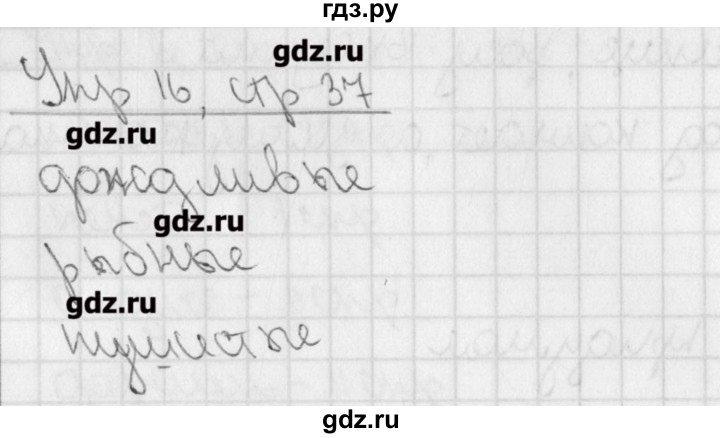 гдз.ру
gdz.ru
Упр 16, стр 37
gdz.ru
дождливые
gdz.ru
рыбные
gdz.ru
пушистые
gdz.ru